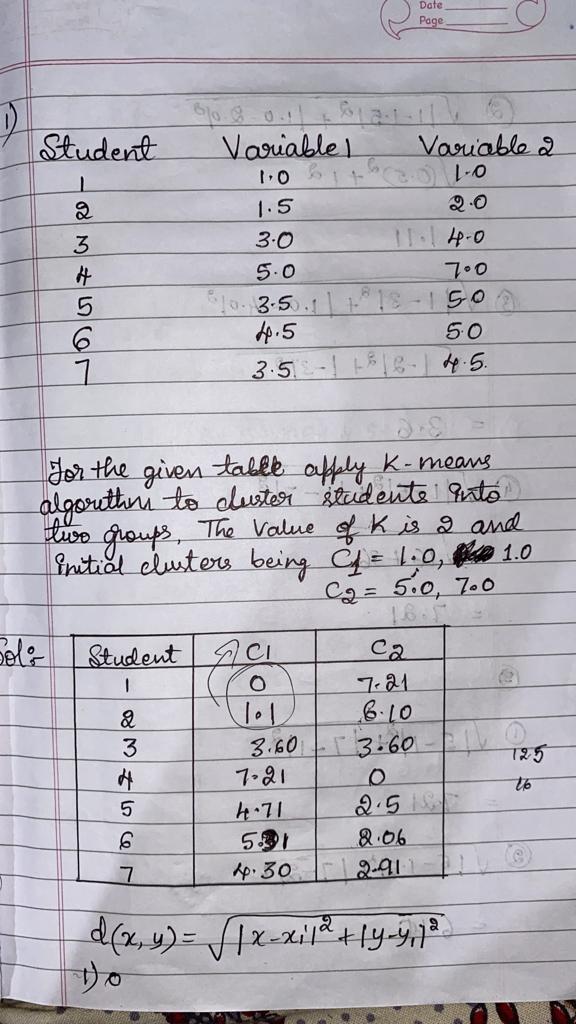 Date
Page
1)
Student Variable 1 Variable 2
1 1.0 1.0
2 1.5 2.0
3 3.0 4.0
4 5.0 7.0
5 3.5 5.0
6 4.5 5.0
7 3.5 4.5
For the given table apply K-means
algorithm to cluster students into
two groups, The value of K is 2 and
initial clusters being C1 = 1.0, 1.0
C2 = 5.0, 7.0
Sol:
Student C1 C2
1 0 7.21
2 1.1 6.10
3 3.60 3.60
4 7.21 0
5 4.71 2.5
6 2.06
7 4.30 2.91
125
16
d(x, y) = √|x-xi|² + |y-yi|²
1) 0